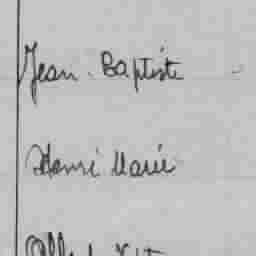 Jean. Baptiste -
Henri Marie